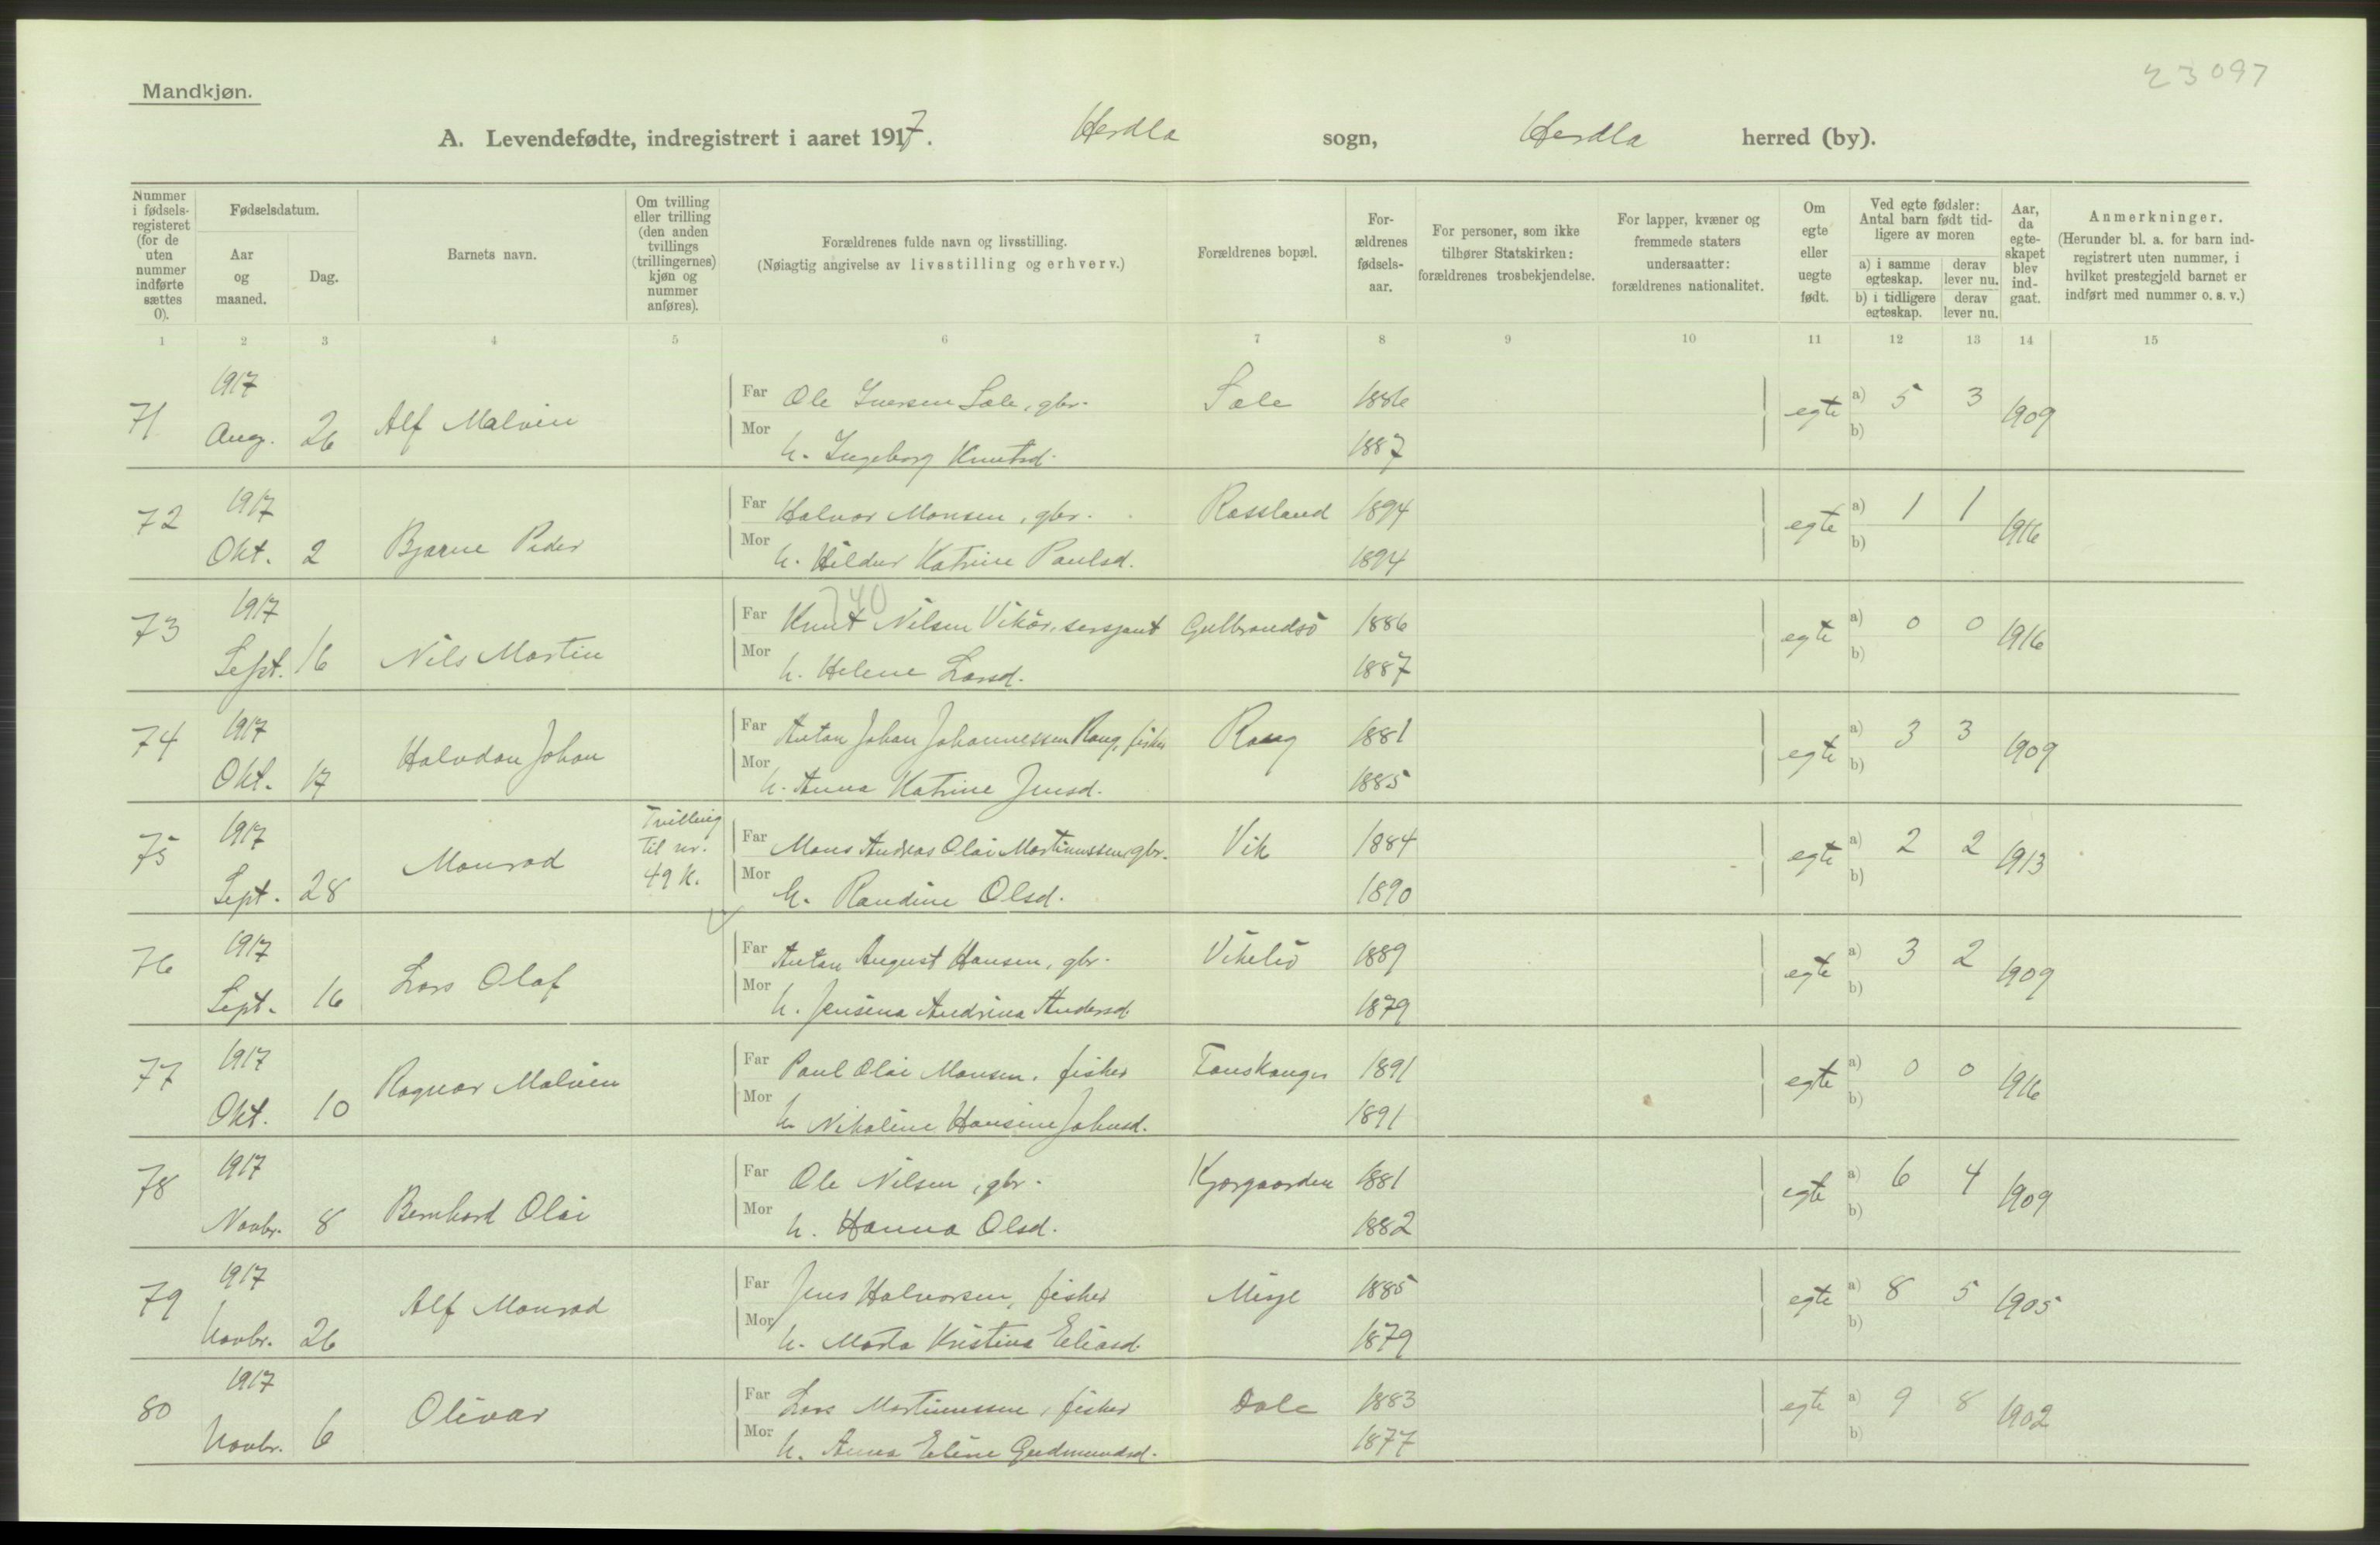 23097
Mandkjøn.
A. Levendefødte, indregistrert i aaret 1917. Herdla sogn, Herdla herred (by).
Nummer i fødsels-registeret (for de uten nummer indførte sættes 0).
Fødselsdatum.
Aar og maaned.
Dag.
Barnets navn.
Om tvilling eller trilling (den anden tvillings (trillingernes) kjøn og nummer anføres).
Forældrenes fulde navn og livsstilling.
(Nøiagtig angivelse av livsstilling og erhverv.)
Forældrenes bopæl.
For-ældrenes fødsels-aar.
For personer, som ikke tilhører Statskirken: forældrenes trosbekjendelse.
For lapper, kvæner og fremmede staters undersaatter: forældrenes nationalitet.
Om egte eller uegte født.
Ved egte fødsler: Antal barn født tid-ligere av moren
a) i samme egteskap. derav lever nu.
b) i tidligere egteskap. derav lever nu.
Aar, da egte-skapet blev ind-gaat.
Anmerkninger.
(Herunder bl. a. for barn ind-registrert uten nummer, i hvilket prestegjeld barnet er indført med nummer o. s. v.)
1 2 3 4 5 6 7 8 9 10 11 12 13 14 15
71 1917 Aug. 26 Alf Malvin Far Ole Iversen Sæle, gbr. Sæle 1886 egte a) 5 3 1909
Mor h. Ingeborg Knutsd. 1887 b)
72 1917 Okt. 2 Bjarne Peder Far Halvor Monsen, gbr. Rossland 1894 egte a) 1 1 1916
Mor h. Hildur Katrine Paulsd. 1894 b)
740
73 1917 Sept. 16 Nils Martin Far Knut Nilsen Vikör, sersjant Gulbrandsö 1886 egte a) 0 0 1916
Mor h. Helene Larsd. 1887 b)
74 1917 Okt. 17 Halvdan Johan Far Anton Johan Johannessen Rong, fisker Rong 1881 egte a) 3 3 1909
Mor h. Anna Katrine Jensd. 1885 b)
75 1917 Sept. 28 Monrad Tvilling til nr. 49 K. Far Mons Andreas Olai Martinussen, gbr. Vik 1884 egte a) 2 2 1913
Mor h. Randine Olsd. 1890 b)
76 1917 Sept. 16 Lars Olaf Far Anton August Hansen, gbr. Vikelid 1889 egte a) 3 2 1909
Mor h. Jensina Andrina Andersd. 1879 b)
77 1917 Okt. 10 Ragnar Malvin Far Paul Olai Monsen, fisker Tonskanger 1891 egte a) 0 0 1916
Mor h. Nikoline Hansine Johnsd. 1891 b)
78 1917 Novbr. 8 Bernhard Olai Far Ole Nilsen, gbr. Kjærgaarden 1881 egte a) 6 4 1909
Mor h. Hanna Olsd. 1882 b)
79 1917 Novbr. 26 Alf Monrad Far Jens Halvorsen, fisker Misje 1885 egte a) 8 5 1905
Mor h. Marta Kristina Eliasd. 1879 b)
80 1917 Novbr. 6 Olivar Far Lars Martinussen, fisker Dale 1883 egte a) 9 8 1902
Mor h. Anna Eline Gudmundsd. 1877 b)